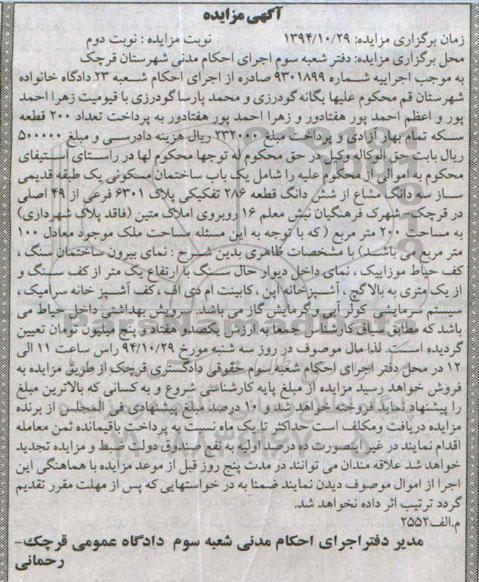 آگهی مزایده
زمان برگزاری مزایده: ۱۳۹۴/۱۰/۲۹ نوبت مزایده : نوبت دوم
محل برگزاری مزایده: دفتر شعبه سوم اجرای احکام مدنی شهرستان قرچک
به موجب اجراییه شماره ۹۳۰۱۸۹۹ صادره از اجرای احکام شعبه ۲۳ دادگاه خانواده
شهرستان قم محکوم علیها یگانه گودرزی و محمد پارسا گودرزی با قیومیت زهرا احمد
پور و اعظم احمد پور هفتادور و زهرا احمد پور هفتادور به پرداخت تعداد ۲۰۰ قطعه
سکه تمام بهار آزادی و پرداخت مبلغ ۲۳۲۰۰۰ ریال هزینه دادرسی و مبلغ ۵۰۰۰۰۰
ریال بابت حق الوکاله وکیل در حق محکوم له توجها محکوم لها در راستای استیفای
محکوم به اموالی از محکوم علیه را شامل یک باب ساختمان مسکونی یک طبقه قدیمی
ساز سه دانگ مشاع از شش دانگ قطعه ۲۸۶ تفکیکی پلاک ۶۳۰۱ فرعی از ۴۹ اصلی
در قرچک-شهرک فرهنگیان نبش معلم ۱۶ روبروی املاک متین (فاقد پلاک شهرداری)
به مساحت ۲۰۰ متر مربع (که با توجه به این مسئله مساحت ملک موجود معادل ۱۰۰
متر مربع می باشد) با مشخصات ظاهری بدین شرح : نمای بیرون ساختمان سنگ ،
کف حیاط موزاییک ، نمای داخل دیوار حال سنگ با ارتفاع یک متر از کف سنگ و
از یک متری به بالا گچ ، آشپزخانه اپن ، کابینت ام دی اف ، کف آشپز خانه سرامیک ،
سیستم سرمایشی کولر آبی و گرمایش گاز می باشد. سرویش بهداشتی داخل حیاط می
باشد که مطابق سیاق کارشناسی جمعا به ارزش یکصدو هفتاد و پنج میلیون تومان تعیین
گردیده است. لذا مال موصوف در روز سه شنبه مورخ ۹۴/۱۰/۲۹ راس ساعت ۱۱ الی
۱۲ در محل دفتر اجرای احکام شعبه سوم حقوقی دادگستری قرچک از طریق مزایده به
فروش خواهد رسید مزایده از مبلغ پایه کارشناسی شروع و به کسانی که بالاترین مبلغ
را پیشنهاد نماید فروخته خواهد شد و ۱۰ درصد مبلغ پیشنهادی فی المجلس از برنده
مزایده دریافت و مکلف است حداکثر تا یک ماه نسبت به پرداخت باقیمانده ثمن معامله
اقدام نمایند در غیر اینصورت ده درصد اولیه به نفع صندوق دولت ضبط و مزایده تجدید
خواهد شد علاقه مندان می توانند در مدت پنج روز قبل از موعد مزایده با هماهنگی این
اجرا از اموال موصوف دیدن نمایند ضمنا به در خواستهایی که پس از مهلت مقرر تقدیم
گردد ترتیب اثر داده نخواهد شد.
م.الف۲۵۵۲
مدیر دفتر اجرای احکام مدنی شعبه سوم دادگاه عمومی قرچک-
رحمانی